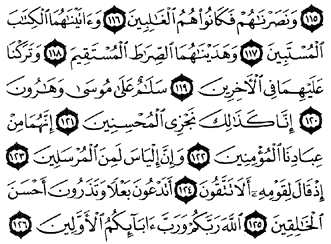 ١١٥ وَنَصَرْنَٰهُمْ فَكَانُوا۟ هُمُ ٱلْغَٰلِبِينَ ١١٦ وَءَاتَيْنَٰهُمَا ٱلْكِتَٰبَ
ٱلْمُسْتَبِينَ ١١٧ وَهَدَيْنَٰهُمَا ٱلصِّرَٰطَ ٱلْمُسْتَقِيمَ ١١٨ وَتَرَكْنَا
عَلَيْهِمَا فِى ٱلْءَاخِرِينَ ١١٩ سَلَٰمٌ عَلَىٰ مُوسَىٰ وَهَٰرُونَ
١٢٠ إِنَّا كَذَٰلِكَ نَجْزِى ٱلْمُحْسِنِينَ ١٢١ إِنَّهُمَا مِنْ
عِبَادِنَا ٱلْمُؤْمِنِينَ ١٢٢ وَإِنَّ إِلْيَاسَ لَمِنَ ٱلْمُرْسَلِينَ ١٢٣
إِذْ قَالَ لِقَوْمِهِۦٓ أَلَا تَتَّقُونَ ١٢٤ أَتَدْعُونَ بَعْلًا وَتَذَرُونَ أَحْسَنَ
ٱلْخَٰلِقِينَ ١٢٥ ٱللَّهَ رَبَّكُمْ وَرَبَّ ءَابَآئِكُمُ ٱلْأَوَّلِينَ ١٢٦